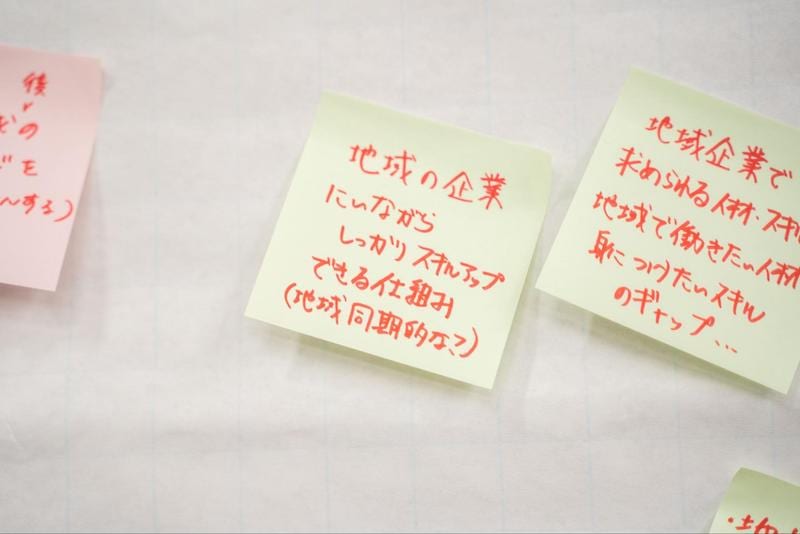 後
の
を
する)
地域の企業
にいながら
しっかりスキルアップ
できる仕組み
(地域同期的な?)
地域企業で
求められる人材・スキル
地域で働きたい人材
身につけたいスキル
のギャップ…
・地